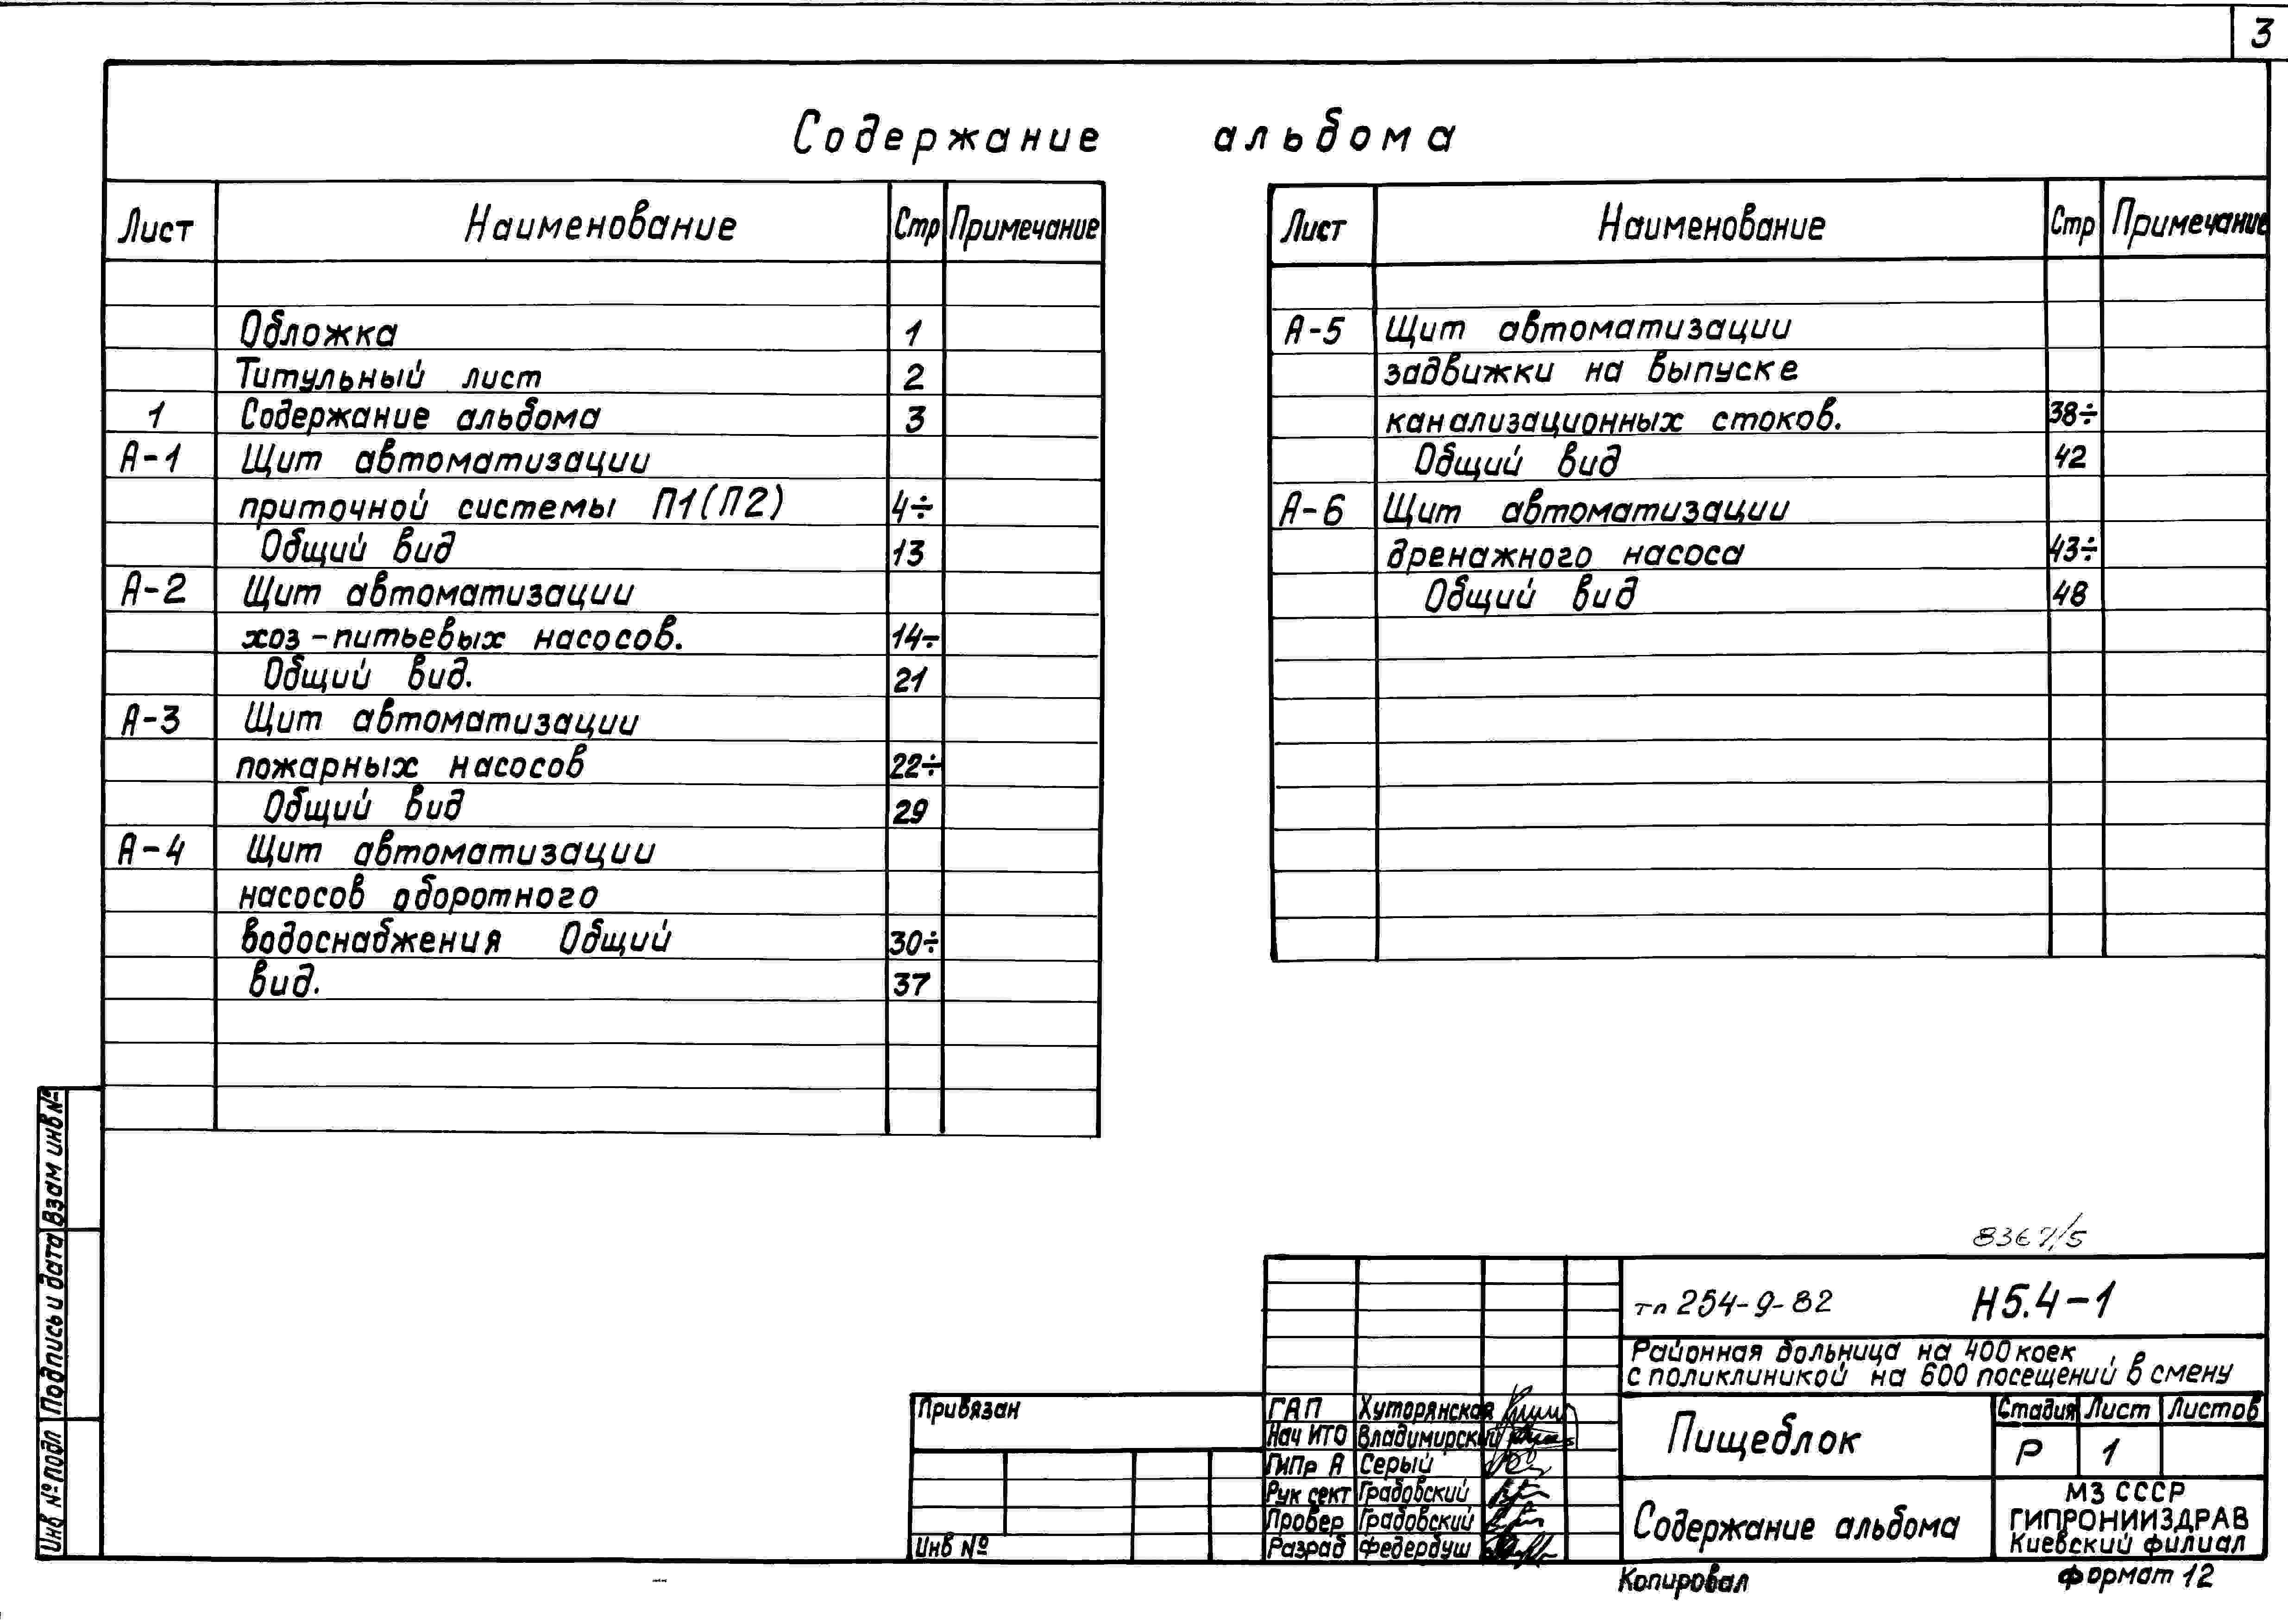 3
Содержание альбома
Лист Наименование Стр Примечание
Обложка 1
Титульный лист 2
1 Содержание альбома 3
А-1 Щит автоматизации
приточной системы П1(П2) 4÷
Общий вид 13
А-2 Щит автоматизации
хоз-питьевых насосов. 14÷
Общий вид. 21
А-3 Щит автоматизации
пожарных насосов 22÷
Общий вид 29
А-4 Щит автоматизации
насосов оборотного
водоснабжения Общий 30÷
вид. 37
Лист Наименование Стр Примечание
А-5 Щит автоматизации
задвижки на выпуске
канализационных стоков. 38÷
Общий вид 42
А-6 Щит автоматизации
дренажного насоса 43÷
Общий вид 48
Взам инв №
Подпись и дата
Инв № подл
8367/5
тп 254-9-82 Н5.4-1
Районная больница на 400 коек
с поликлиникой на 600 посещений в смену
Привязан
Инв №
ГАП Хуторянская
Нач ИТО Владимирский
ГИПр А Серый
Рук сект Градовский
Провер Градовский
Разраб Федербуш
Пищеблок
Стадия Лист Листов
Р 1
Содержание альбома
МЗ СССР
ГИПРОНИИЗДРАВ
Киевский филиал
Копировал Формат 12